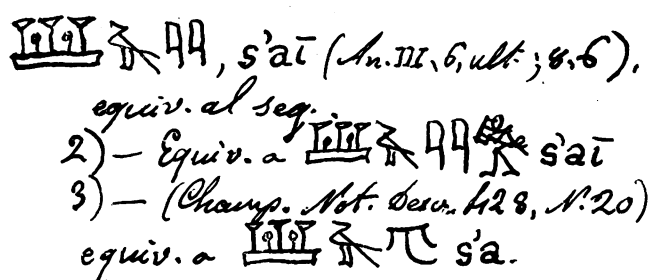 𓆷𓄿𓇋𓇋, s'aī (An. III, 6, ult.; 8, 6),
equiv. al seg.
2) — Equiv. a 𓆷𓄿𓇋𓇋 s'aī
3) — (Champ. Not. Descr. 428, N. 20)
equiv. a 𓆷𓄿 s'a.